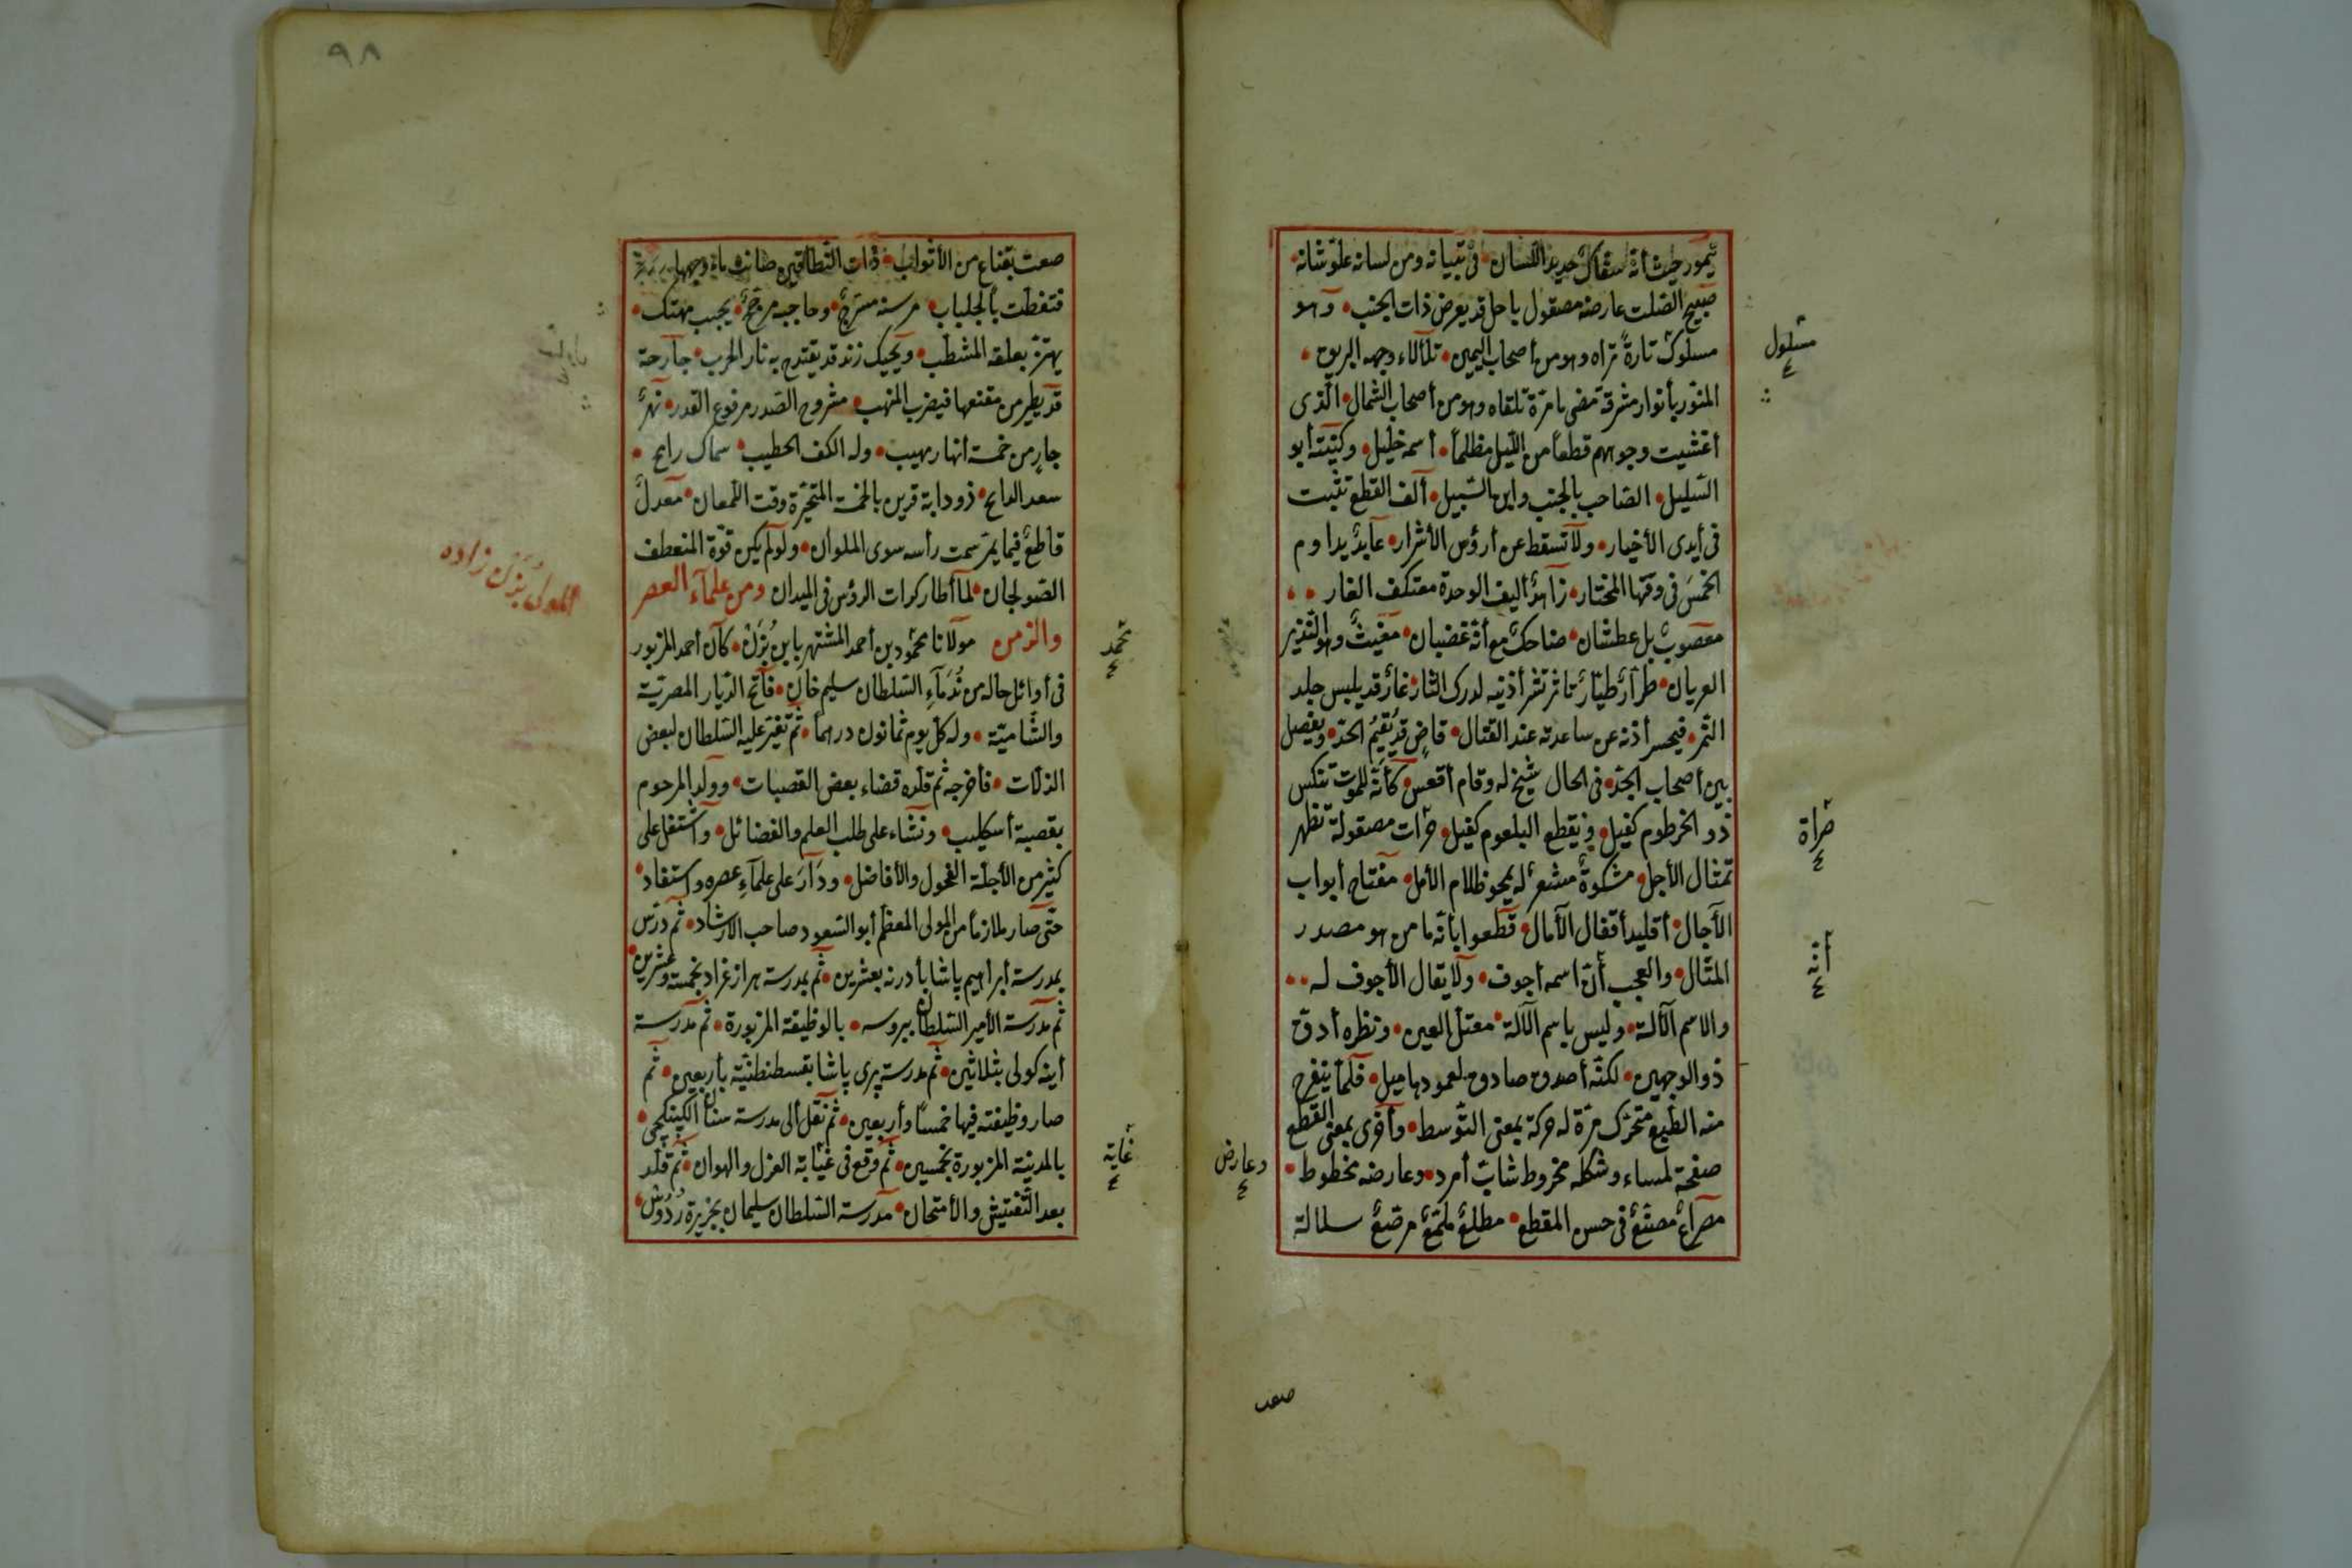 صبيح الصلت عارضه مصقول ياحل قد يعرض ذات الجنب وهو
مسلوك تارة تراه وهو من أصحاب اليمين تلألاء وجهه
المنور بأنوار مشرقة تمضى يا مرة تلقاه وهو من أصحاب الشمال الذى
أغشيت وجوههم قطعاً من الليل مظلماً أسمه خليل وكنيته أبو
السليل الصاحب بالجنب وابن السبيل ألف القطع تثبت
فى أيدى الأخيار ولا تسقط عن أرؤس الأشرار عابد يداوم
الخمس فى وقتها المختار زاهد أليف الوحدة معتكف الغار
معصوب بل عطشان ضاحك مع أنه غضبان مغيث وهو النذير
العريان طرار طيار ناشر أذنيه لدرك الثار قد يلبس جلد
النمر فيحسر أذنه عن ساعدته عند القتال قاض قد يقيم الحد ويفصل
بين أصحاب الجد فى الحال شيخ له وقام أقعس كأنه للموت تنكس
ذو الخرطوم كفيل و يقطع البلعوم كفيل مرأت مصقولة تظهر
تمثال الأجل مشكوة مشعر له يمحو ظلام الأمل مفتاح أبواب
الآجال أقليد أقفال الآمال قطعوا بأنه ما من هو مصدر
المثال والعجب أن اسمه أجوف ولا يقال الأجوف له
والاسم الآلة وليس باسم الآلة معتل العين ونظره أدق
ذو الوجهين لكنه أصدق صادق لعمودها ميل فلما ينفرج
منه الطبع متحرك مرة له حركة بمعنى التوسط وأخرى بمعنى القطع
صفحة لمساء وشكله مخروط شاب أمرد وعارضه مخطوط
مصراع مصنع فى حسن المقطع مطلع ملمع مرصع سلالة
مسلول
مرأة
أنه
وعارض
صعت
٩٨
صعت بقناع من الأثواب ذات النطاقين صانت ماء وجهها
فتغطت بالجلباب مرسنه مسرج وحاجبه مزجج يجيب مهتك
يهتز بعلقه المشطب ويحيك زند قد يقتدح به نار الحرب جارحة
قد يطير من مقنعها فيضرب المنهب مشروح الصدر مرفوع القدر نهر
جار من خمسة أنهار مهيب وله الكف الخطيب سماك رامح
سعد الذابح ذو دابة قرين بالخمسة المتحيرة وقت اللمعان معدل
قاطع فيما يمر سمت رأسه سوى الملوان ولو لم يكن قوة المنعطف
الصولجان لما أطار كرات الرؤس فى الميدان ومن علماء العصر
والزمن مولانا محمود بن أحمد المشتهر بابن بزن كان أحمد المزبور
فى أوائل حاله من ندماء السلطان سليم خان فاتح الديار المصرية
والشامية وله كل يوم ثمانون درهما ثم تغير عليه السلطان لبعض
الزلات فأخرجه ثم قلده قضاء بعض القصبات وولد المرحوم
بقصبة أسكليب ونشاء على طلب العلم والفضائل واشتغل على
كثير من الأجلة الفحول والأفاضل ودار على علماء عصره واستفاد
حتى صار ملازما من المولى المعظم أبو السعود صاحب الارشاد ثم درس
بمدرسة أبراهيم پاشا بأدرنه بعشرين ثم بمدرسة هزازغراد بخمسة وعشرين
ثم مدرسة الأمير السلطان ببروسه بالوظيفة المزبورة ثم مدرسة
أينه كولى بثلاثين ثم مدرسة پرى پاشا بقسطنطنية بأربعين ثم
صار وظيفته فيها خمسا وأربعين ثم نقل ألى مدرسة سنان
بالمدينة المزبورة بخمسين ثم وقع فى غيابة العزل والهوان ثم قلد
بعد التفتيش والأمتحان مدرسة السلطان سليمان بجزيرة رُدُوْس
المولى بزن زاده
محمد
غاية